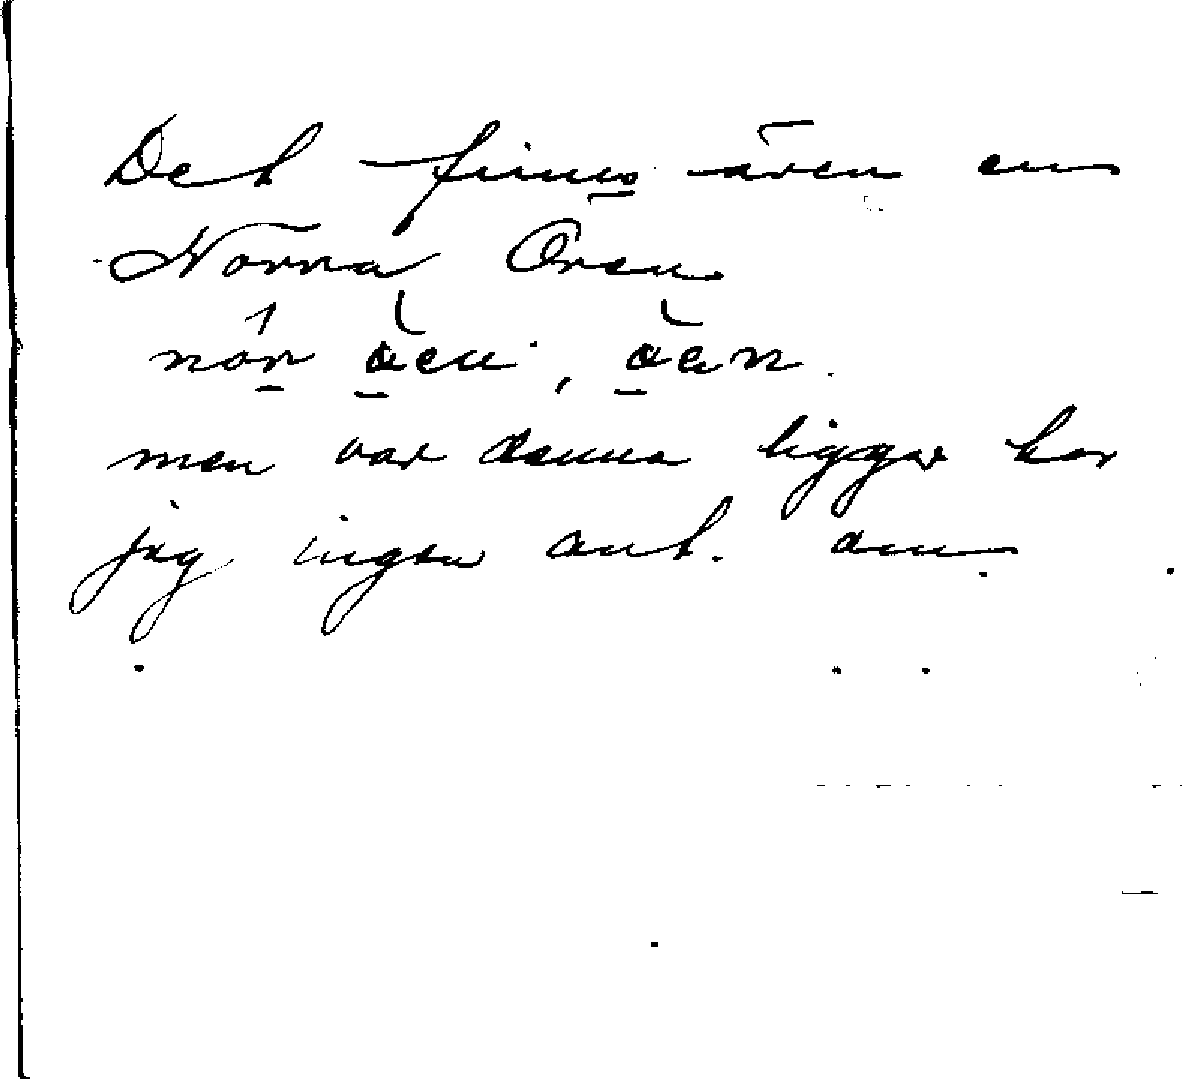 Det finns även en
Norra Oren
nór
men var denna ligger har
jag ingen ant. om